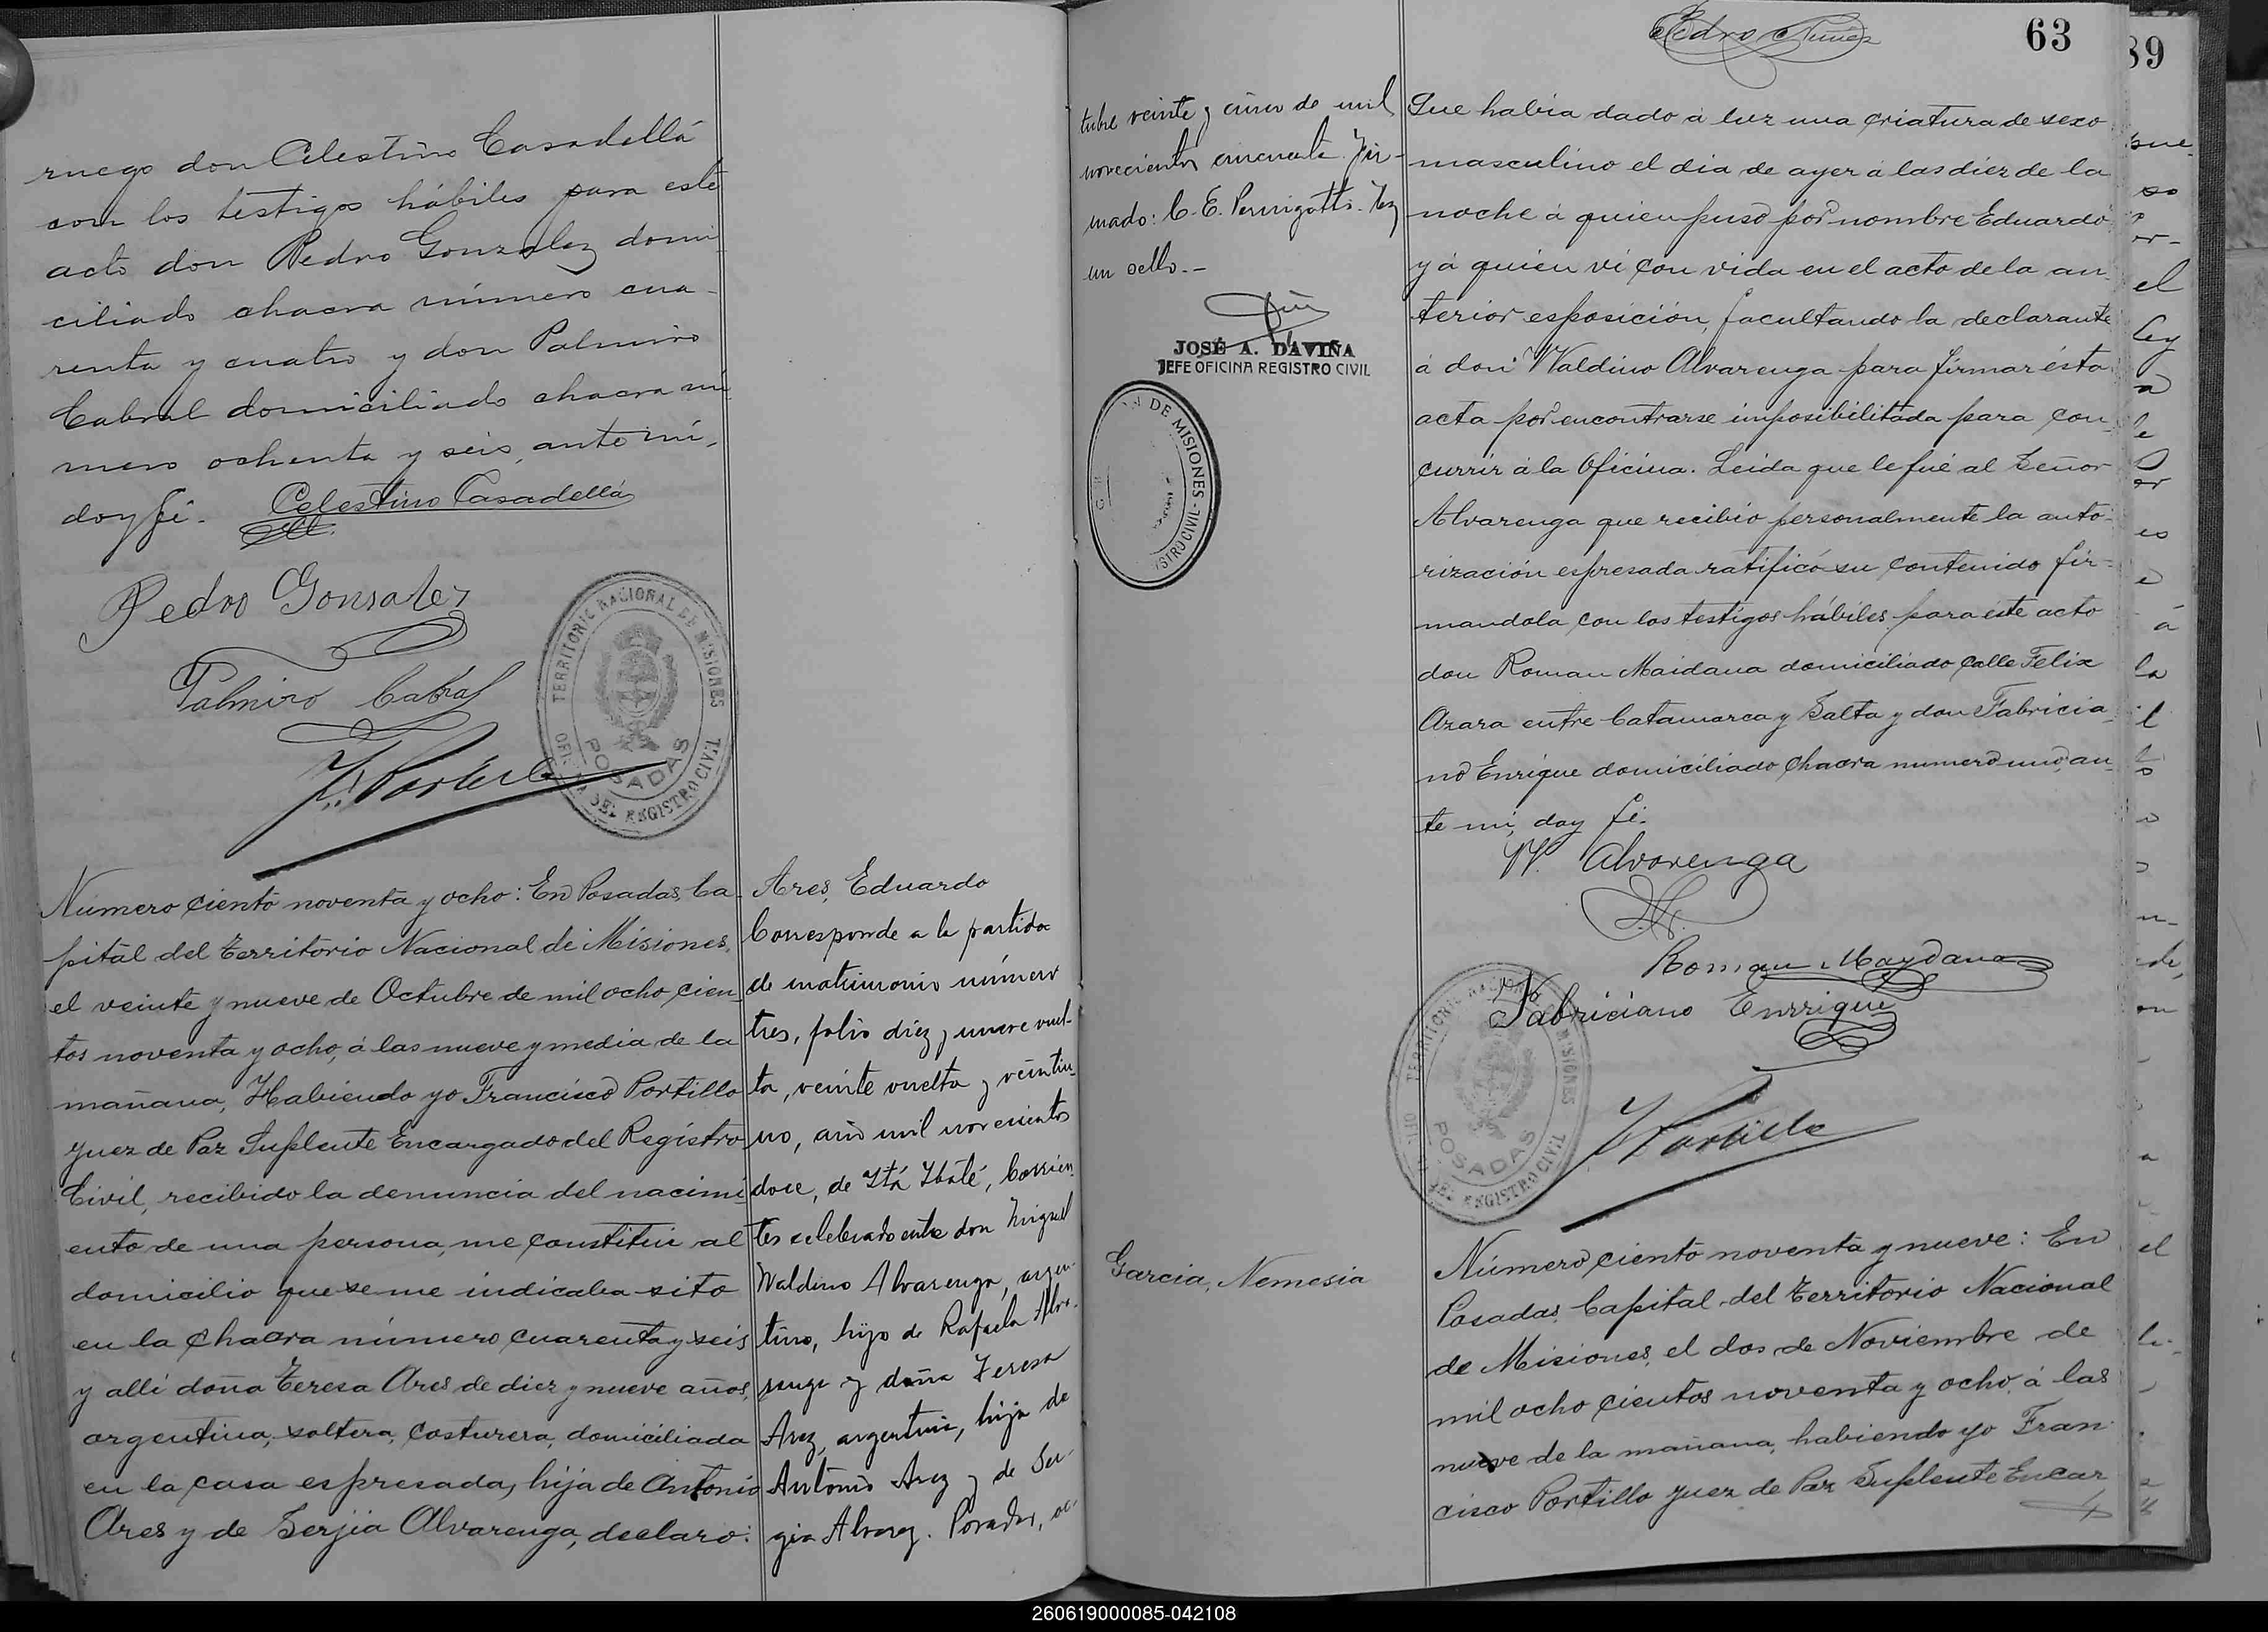 ruego don Celestino Casadellá
con los testigos hábiles para este
acto don Pedro Gonzalez domi
ciliado chacra número cua-
renta y cuatro y don Palmiro
Cabral domiciliado chacra nú
mero ochenta y seis, ante mí,
doy fé. Celestino Casadellá
Pedro Gonsalez
Palmiro Cabral
F. Portillo
TERRITORIO NACIONAL DE MISIONES
POSADAS
DEL REGISTRO CIVIL
Número ciento noventa y ocho: En Posadas, Ca-
pital del Territorio Nacional de Misiones,
el veinte y nueve de Octubre de mil ocho cien
tos noventa y ocho, á las nueve y media de la
mañana, Habiendo yo Francisco Portillo
Juez de Paz Suplente Encargado del Registro
Civil, recibido la denuncia del nacimi
ento de una persona, me constitui al
domicilio que se me indicaba sito
en la Chacra número cuarenta y seis
y alli doña Teresa Ares de diez y nueve años,
argentina, soltera, costurera, domiciliada
en la casa espresada, hija de Antonio
Ares y de Serjia Alvarenga, declaro:
Ares, Eduardo
Corresponde a la partida
de matrimonio número
tres, folio diez y nueve vuel-
ta, veinte vuelta y veintiu-
no, año mil novecientos
doce, de Itá Ibaté, Corrien
tes celebrado entre don Miguel
Waldino Alvarenga, argen-
tino, hijo de Rafaela Alva-
renga y doña Teresa
Arez, argentina, hija de
Antonio Arez y de Ser-
gia Alvarez. Posadas, oc-
tubre veinte y cinco de mil
novecientos cincuenta. Fir-
mado: C. E. Pernigotti. Hay
un sello.-
JOSÉ A. DAVIÑA
JEFE OFICINA REGISTRO CIVIL
N DE MISIONES
STRO CIVIL
Pedro Nuñez
63
89
Que habia dado á luz una criatura de sexo
masculino el dia de ayer á las diez de la
noche á quien puso por nombre Eduardo
y á quien ví con vida en el acto de la an
terior esposición, facultando la declarante
á don Waldino Alvarenga para firmar ésta
acta por encontrarse imposibilitada para con
currir á la Oficina. Leida que le fué al Señor
Alvarenga que recibió personalmente la auto-
rización espresada ratificó su contenido fir-
mandola con los testigos hábiles para éste acto
don Roman Maidana domiciliado calle Felix
Azara entre Catamarca y Salta y don Fabricia
no Enrique domiciliado Chacra numero uno, an
te mí, doy fé.
W. Alvarenga
Roman Maydana
Fabriciano Enrrique
F Portillo
TERRITORIO NACIONAL DE MISIONES
POSADAS
DEL REGISTRO CIVIL
Garcia, Nemesia
Número ciento noventa y nueve: En
Posadas Capital del Territorio Nacional
de Misiones, el dos de Noviembre de
mil ocho cientos noventa y ocho, á las
nueve de la mañana, habiendo yo Fran
cisco Portillo Juez de Paz Suplente Encar
260619000085-042108